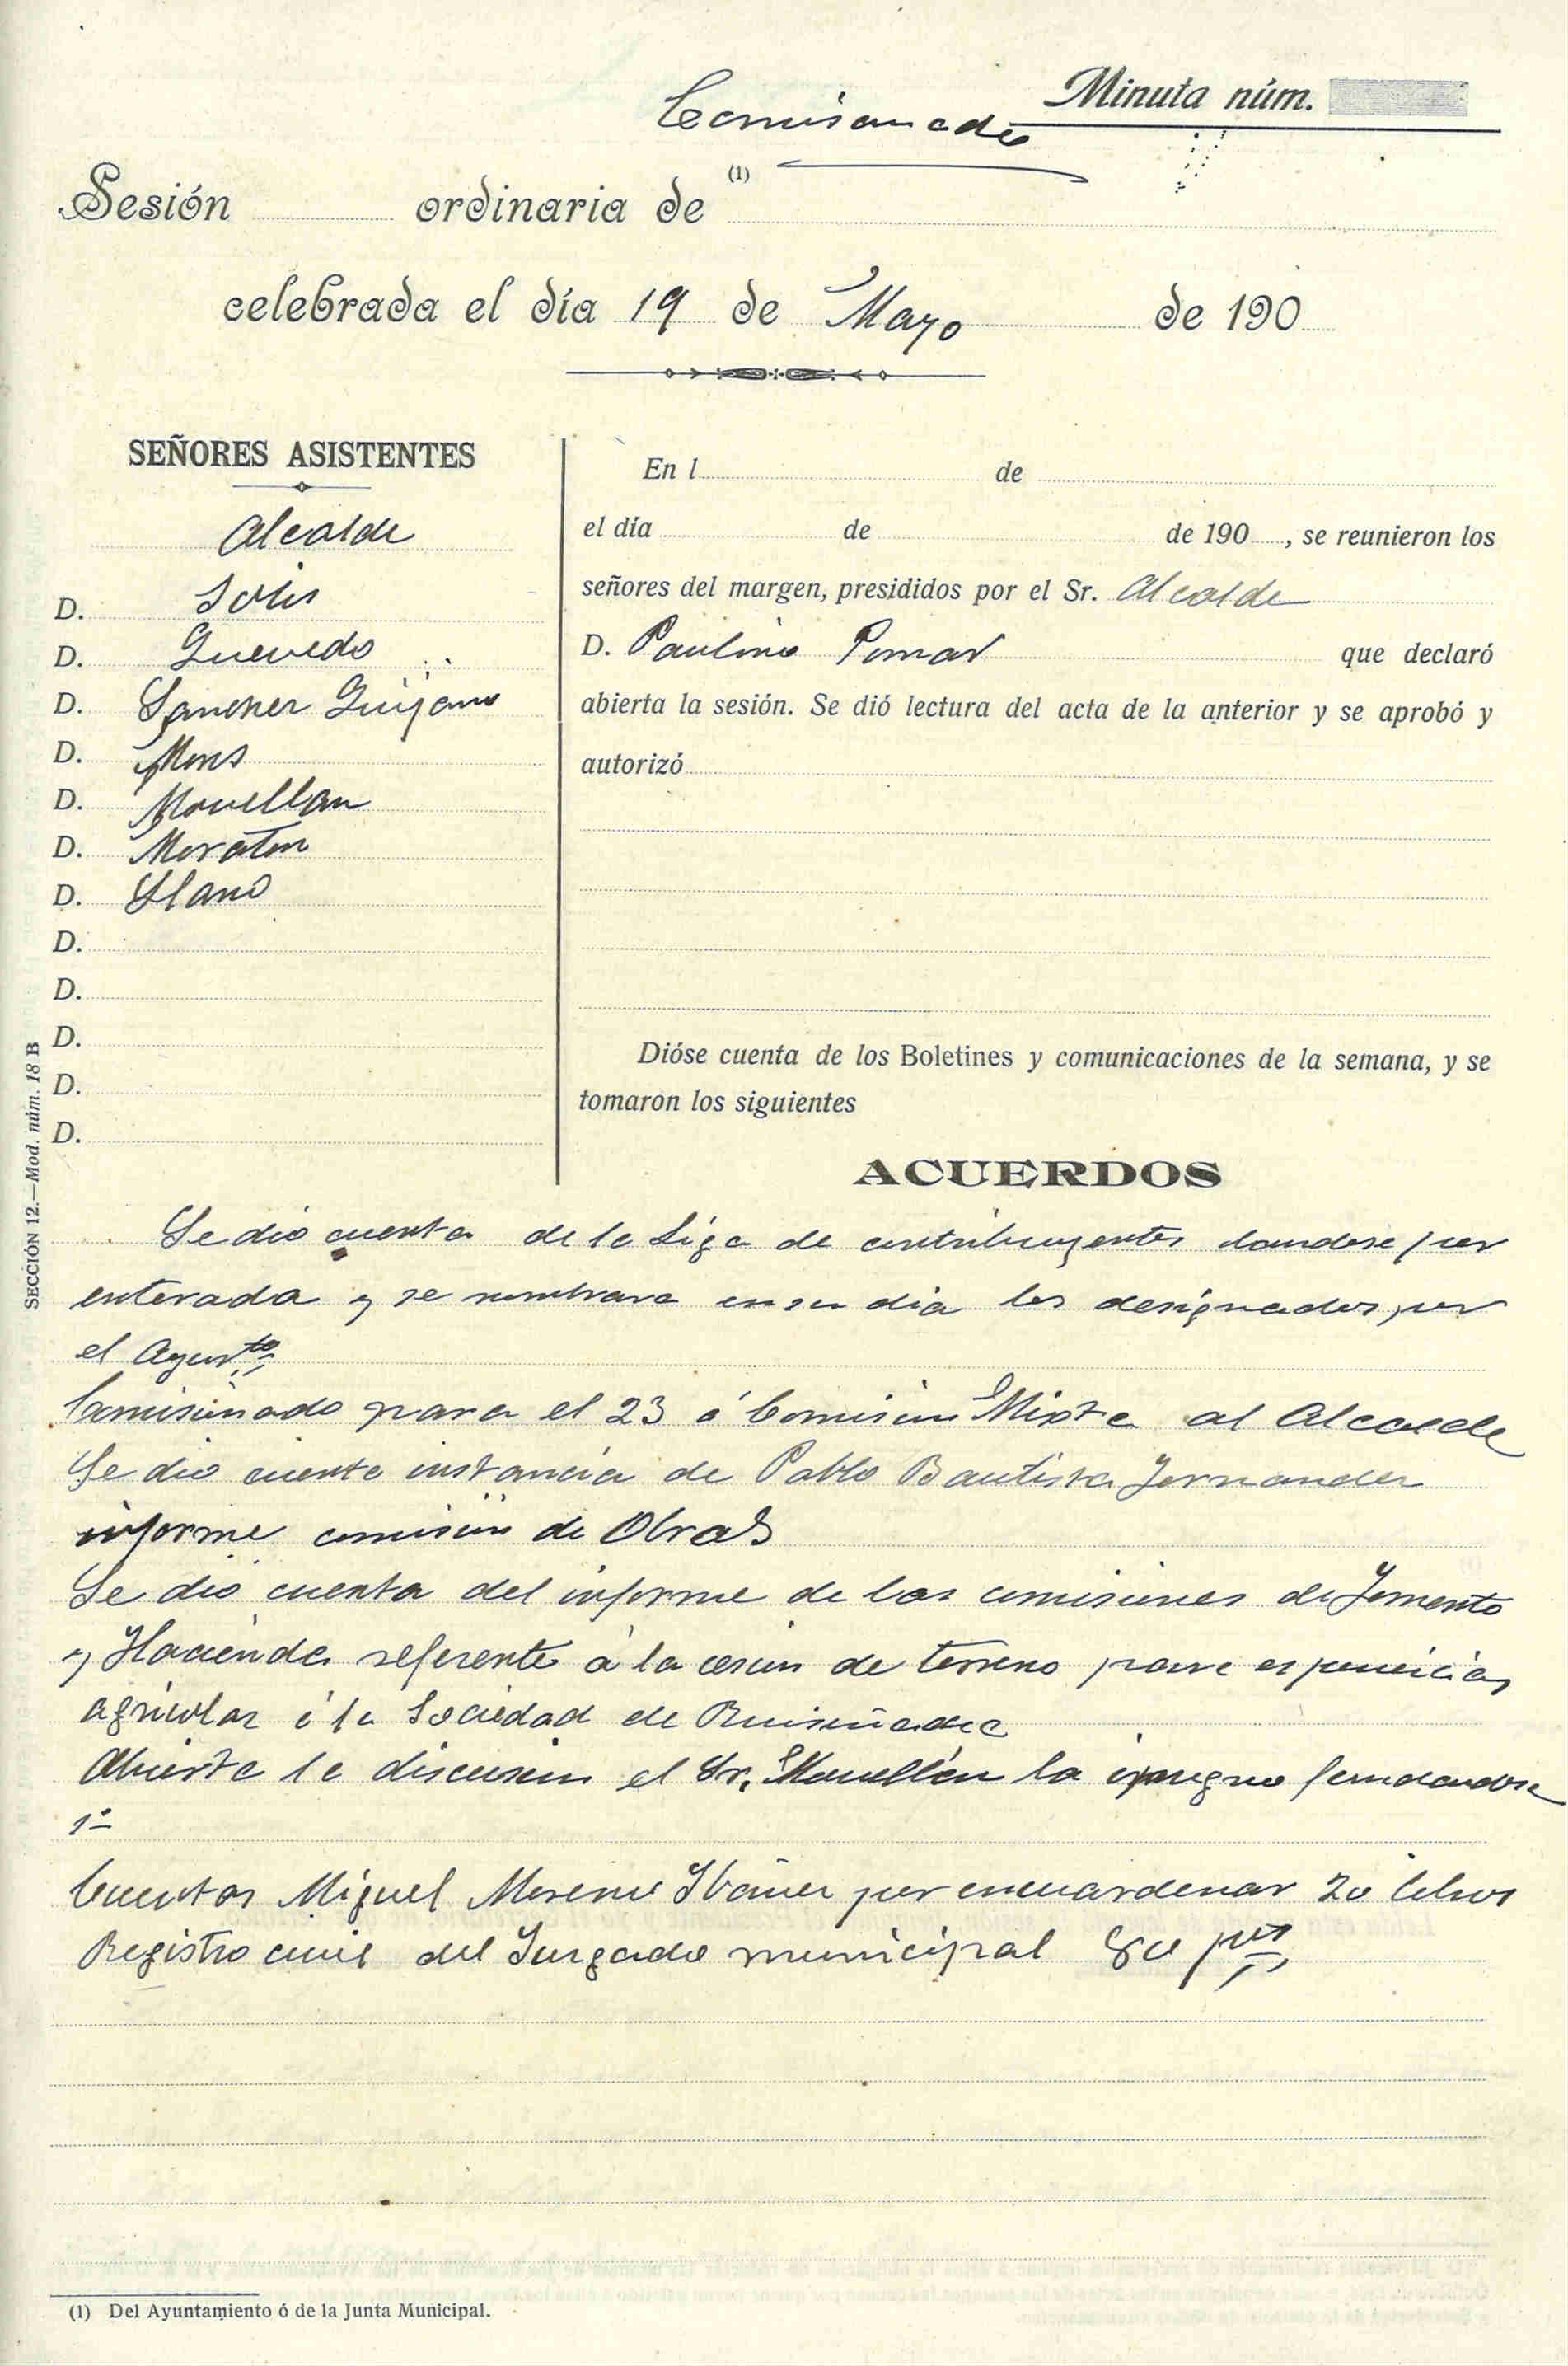 Minuta núm.
Comisionado
Sesión ordinaria de (1)
celebrada el día 19 de Mayo de 190
SEÑORES ASISTENTES
Alcalde
D. Solis
D. Quevedo
D. Sanchez Quijano
D. Mons
D. Movellan
D. Moraton
D. Llano
D.
D.
D.
D.
D.
En l de
el día de de 190 , se reunieron los
señores del margen, presididos por el Sr. Alcalde
D. Paulino Pomar que declaró
abierta la sesión. Se dió lectura del acta de la anterior y se aprobó y
autorizó
Dióse cuenta de los Boletines y comunicaciones de la semana, y se
tomaron los siguientes
ACUERDOS
Se dio cuenta de la Liga de contribuyentes dandose por
enterada y se nombrara en su dia los designados por
el Ayunto
Comisionado para el 23 á Comision Mixta al Alcalde
Se dio cuenta instancia de Pablo Bautista Fernandez
informe comision de Obras
Se dio cuenta del informe de las comisiones de Fomento
y Hacienda referente á la cesion de terreno para esperiencias
agricolas á la Sociedad de Ruiseñada
Abierta la discusion el Sr. Movellán la impugno fundandose
1º
Cuentas Miguel Moreno Ibañez por encuardenar 20 libros
Registro civil del Juzgado municipal 80 pts
SECCIÓN 12.—Mod. núm. 18 B
(1) Del Ayuntamiento ó de la Junta Municipal.